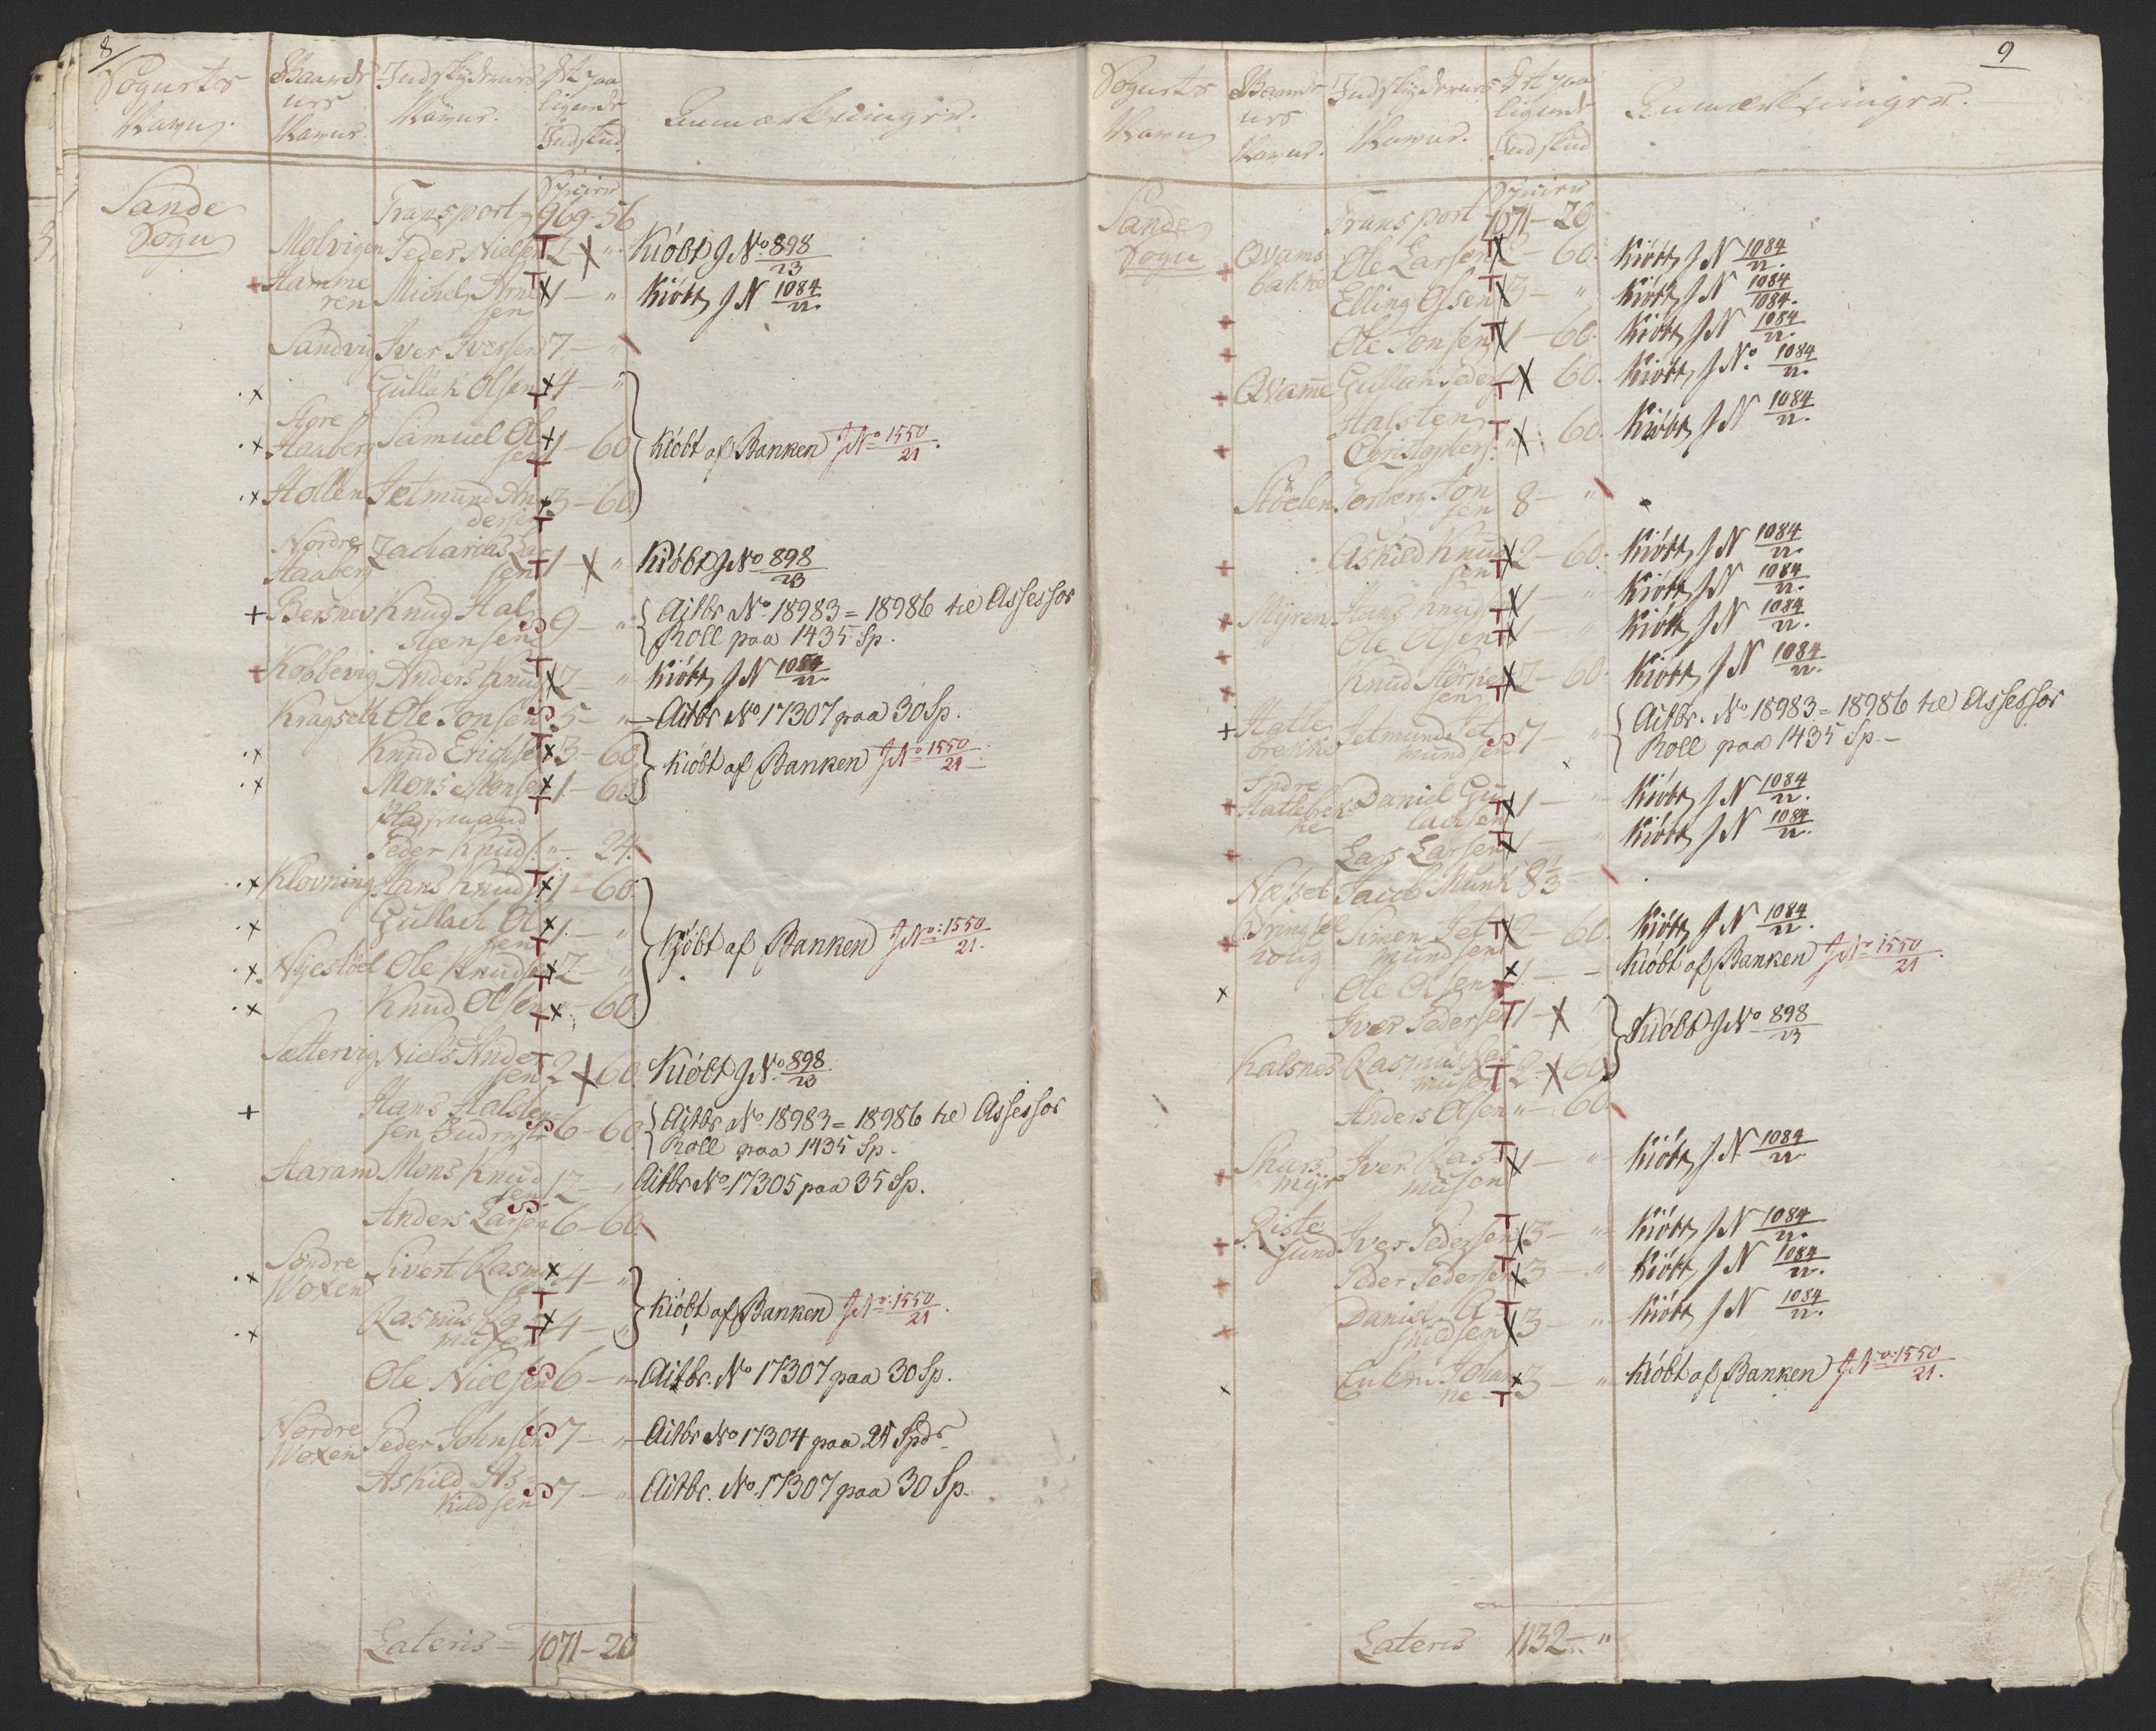 8
Sognets Navn.
Gaardenes Navne.
Indskydernes Navne.
Det paaligende Indskud.
Anmærkninger.
Sande Sogn
Transport 969-56
Molvigen Peder Nielsen 2 - " Kiöbt J No 898/23
Hammeren Michel Arnesen 1 - " Kiöbt J N 1084/22.
Sandvig Iver Iversen 7 - "
Gullak Olsen 4 - "
Store Haaberg Samuel Olsen 1 - 60 Kiöbt af Banken J No 1550/21.
Hollen Jetmund Andersen 3 - 60
Nordre Haaberg Zacharias Larsen 1 - " Kiöbt J No 898/23
+ Bersnev Knud Halsteensen 9 - " Actbr No 18983 = 18986 til Assessor
Roll paa 1435 Sp.
+ Kobbevig Anders Knuds 2 - " Kiöbt J N 1084/22.
Kragseth Ole Jonsen 5 - " Actbr No 17307 paa 30 Sp.
Knud Erichsen 3 - 60 Kiöbt af Banken J No 1550/21
Mons Monsen 1 - 60
Peder Knuds. " - 24.
Klovning Hans Knuds 1 - 60.
Gullach Olsen 1 - " Kjöbt af Banken J No: 1550/21.
Nyestöel Ole Knudsen 2 - "
Knud Olsen " - 60
Sættervig Niels Andersen 2 - 60 Kiöbt J No. 898/23
+ Hans Halstensen 6 - 60 Actbr No 18983 = 18986 til Assessor
Roll paa 1435 Sp.
Haram Mons Knudsen 12 - " Actbr No 17305 paa 35 Sp.
Anders Larsen 6 - 60.
Söndre Woxen Sivert Rasm 4 - "
Rasmus Rasmusen 4 - " Kiöbt af Banken J No: 1550/21.
Ole Nielsen 6 - " Actbr. No 17307 paa 30 Sp.
Nordre Woxen Peder Johnsen 7 - " Actbr No 17304 paa 25 Spdr
Askild Askildsen 7 - " Actbr. No. 17307 paa 30 Sp.
Lateris = 1071 - 20
9
Sognets Navn
Gaardenes Navne.
Indskydernes Navne.
Det paaligende Indskud
Anmærkninger.
Sande Sogn
Transport 1071 - 20
Qvamsbakke Ole Larsen 2 - 60. Kiöbt J N 1084/22.
Elling Olsen 3 - " Kiöbt J N 1084/1084.
Ole Jonsen 1 - 60. Kiöbt J N 1084/22.
Qvamme Gullak Peders 60. Kiöbt J No. 1084/22.
Halsten Christophers: " 60. Kiöbt J N 1084/22.
Stöelen Torberg Jonsen 8 - "
Askild Knudsen 2 - 60. Kiöbt J N 1084/22.
Myren Hans Knuds 1 - " Kiöbt J N 1084/22.
Ole Olsen 1 - " Kiöbt J N 1084/22.
Knud 2 - 60. Kiöbt J N 1084/22.
+ Hatlebrekke Jetmund Jetmundsen 7 - " Actbr. No 18983 = 18986 til Assessor
Roll paa 1435 Sp. -
Hatlebrekke Daniel Gullachsen 1 - " Kiöbt J N 1084/22.
Lars Larsen 1 - " Kiöbt J N 1084/22.
Næsset Jacob Munk 83
Simen Jetmundsen 2 - 60. Kiöbt J N 1084/22.
Ole Olsen 1 - - Kiöbt af Banken J No 1550/21.
Iver Pedersen 1 - " Kiöbt J No 898/23
Kalsnes Rasmus Rasmusen 2 - 60
Anders Olsen " - 60
Skarsmyr Iver Rasmusen 1 - " Kiöbt J N 1084/22
Ristesund Iver Pedersen 3 - " Kiöbt J N 1084/22.
Peder Pedersen 3 - " Kiöbt J N 1084/22.
Daniel Askildsen 3 - " Kiöbt J N 1084/22.
Johanne 3 - " Kiöbt af Banken J No: 1550/21.
Lateris 1132 - "